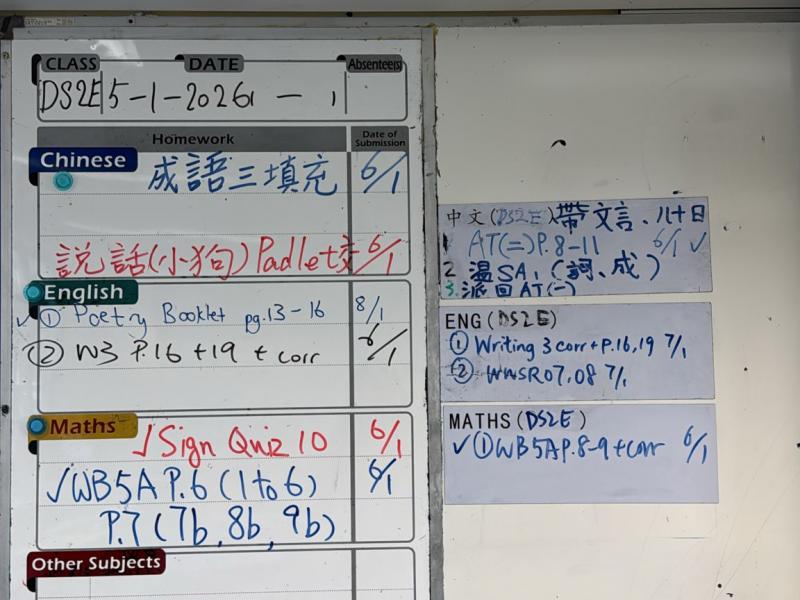 CLASS DATE Absentee(s)
DS2E 5-1-2026
Homework Date of Submission
Chinese
成語三填充 6/1
說話(小狗句)Padlet交 6/1
English
✓ ① Poetry Booklet pg.13-16 8/1
② W3 P.16 +19 + corr 6/1
Maths
✓Sign Quiz 10 6/1
✓WB5A P.6 (1 to 6) 6/1
P.7 (7b, 8b, 9b)
Other Subjects
中文(DS2E)帶文言、八十日
1 AT(二)P.8-11 6/1 ✓
2. 温SA1 (詞、成)
3. 派回AT(一)
ENG(DS2E)
① Writing 3 corr+P.16,19 7/1
② WWSR07,08 7/1
MATHS(DS2E)
✓①WB5AP.8-9+corr 6/1